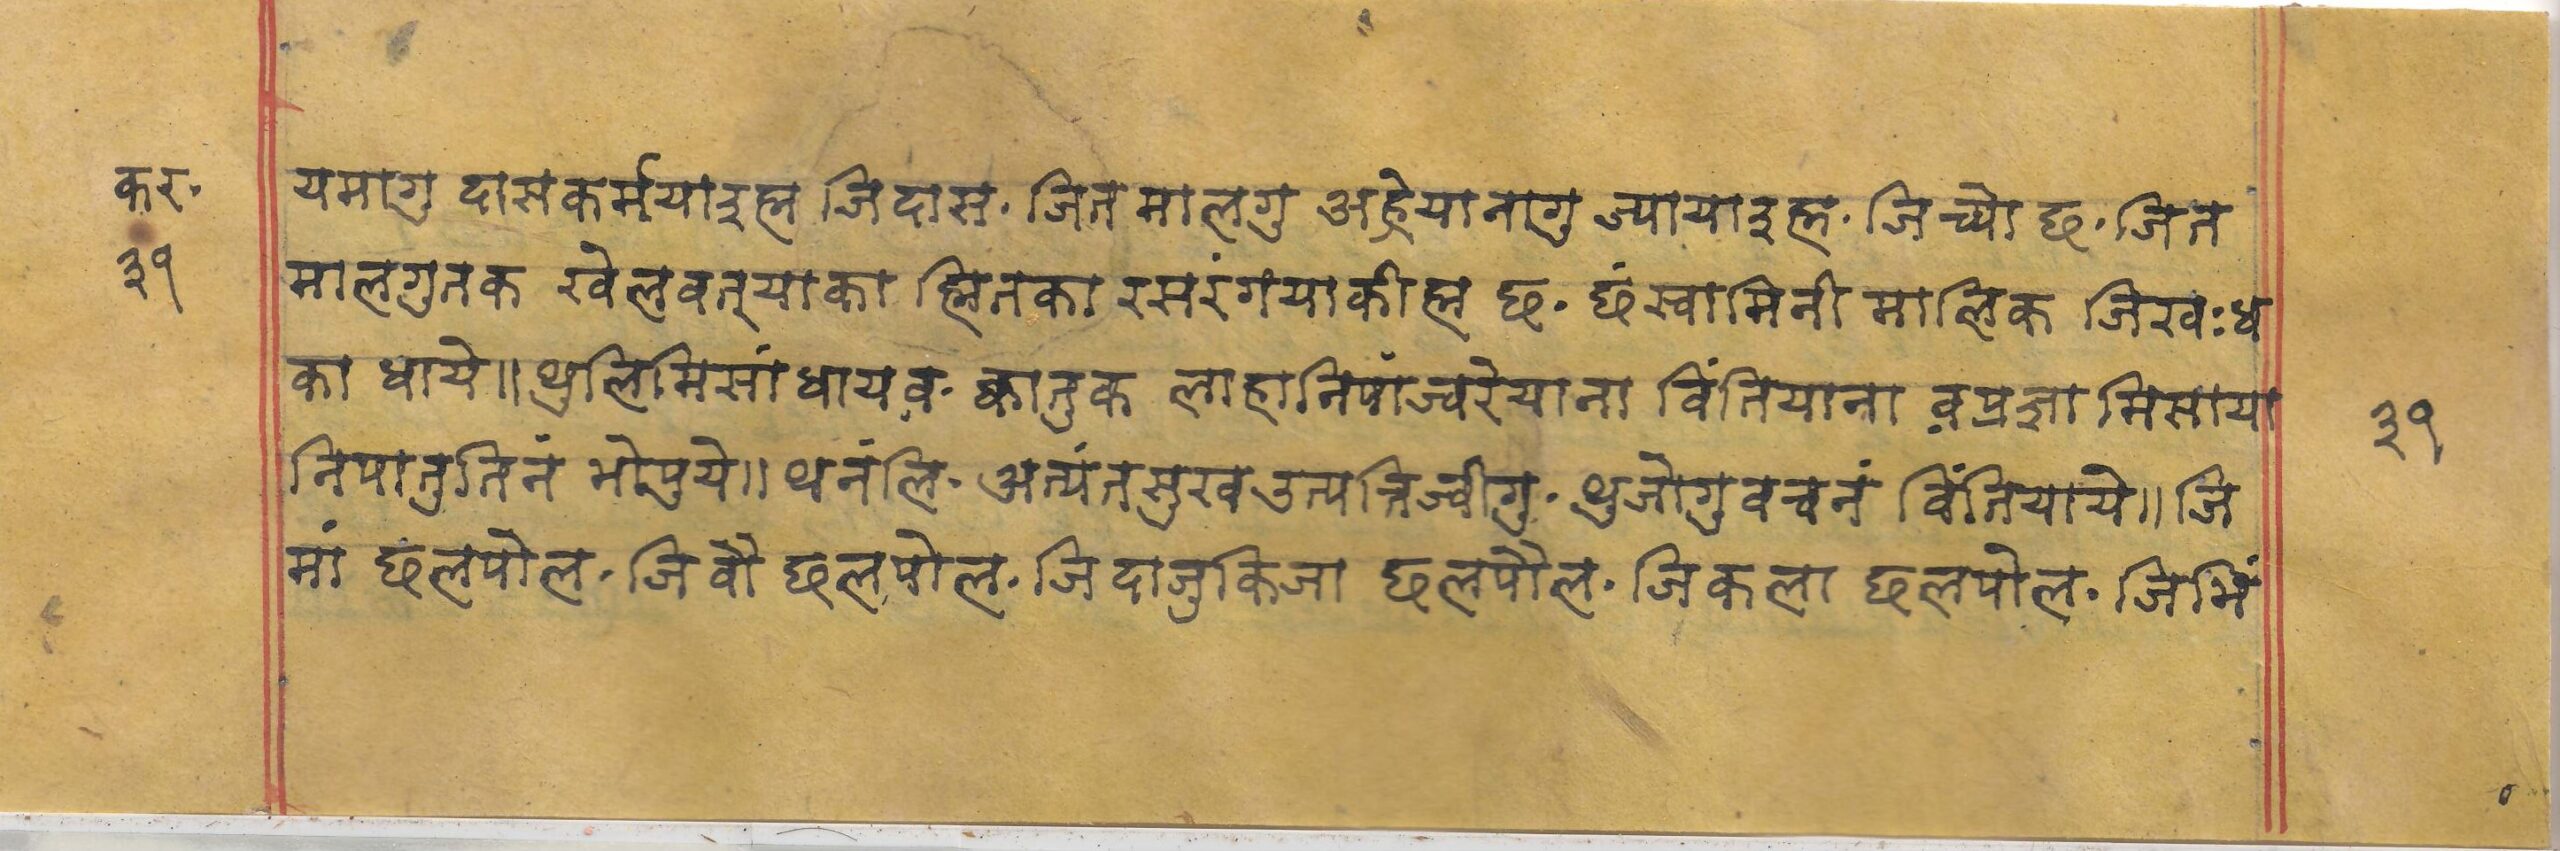 कर.
३१
यमागु दासकर्मयाइह्म जिदास. जित मालगु अह्रेयानागु ज्यायाइह्म. जिच्यो छ. जित
मालगुतक खेलवत्याका ह्मितका रसरंगयाकीह्म छ. छंस्वामिनी मालिक जिखः ध
का धाये॥ थुलिमिसां धायव. क्वातुक लाहानिपांज्वरेयाना विंतियाना वप्रज्ञा मिसाया
निपातुतिनं भोपुये॥ थनंलि. अत्यंतसुख उत्पत्तिज्वीगु. थुजोगु वचनं विंतियाये॥ जि
मां छलपोल. जिवौ छलपोल. जिदाजुकिजा छलपोल. जिकला छलपोल. जिभिं
३१